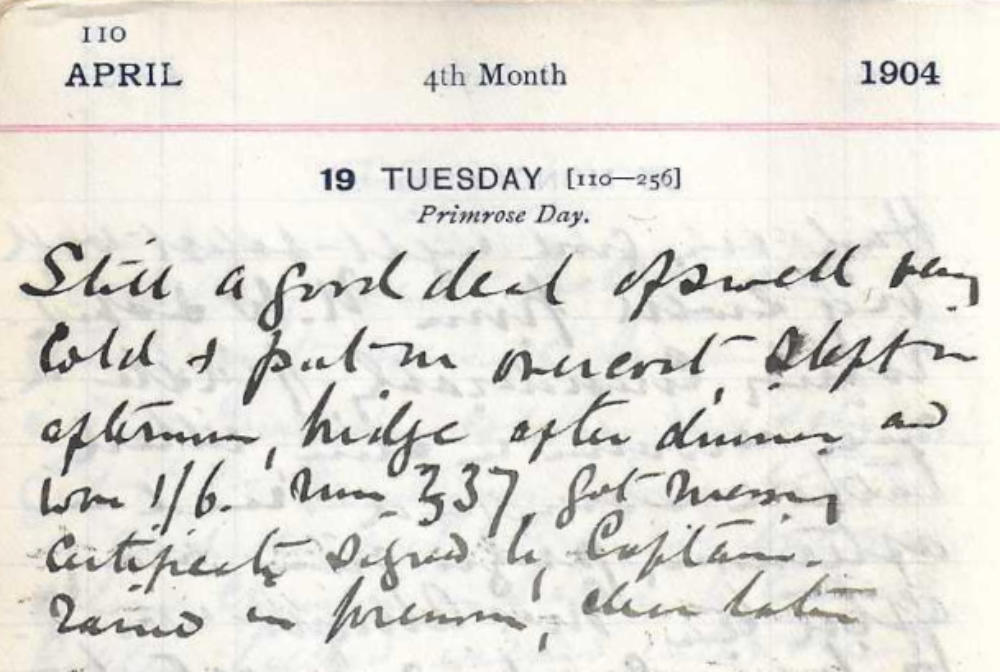 110
APRIL 4th Month 1904
19 TUESDAY [110—256]
Primrose Day.
Still a good deal of swell very
cold & put on overcoat Slept in
afternoon, bridge after dinner and
won 1/6. run 337, got
certificate signed by Captain.
Rained in forenoon, clear later